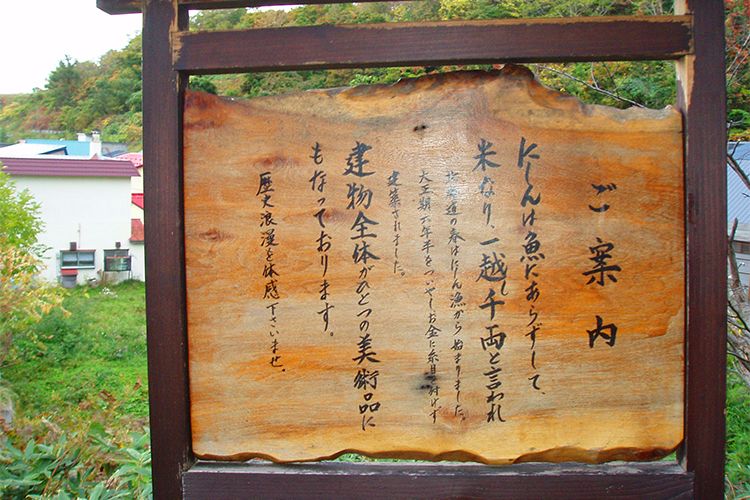 ご案内
にしんは魚にあらずして、
米なり、一越し千両と言われ
北海道の春はにしん漁から始まりました。
大正期六年半をついやしお金に糸目を付けず
建築されました。
建物全体がひとつの美術品に
もなっております。
歴史浪漫を体感下さいませ。